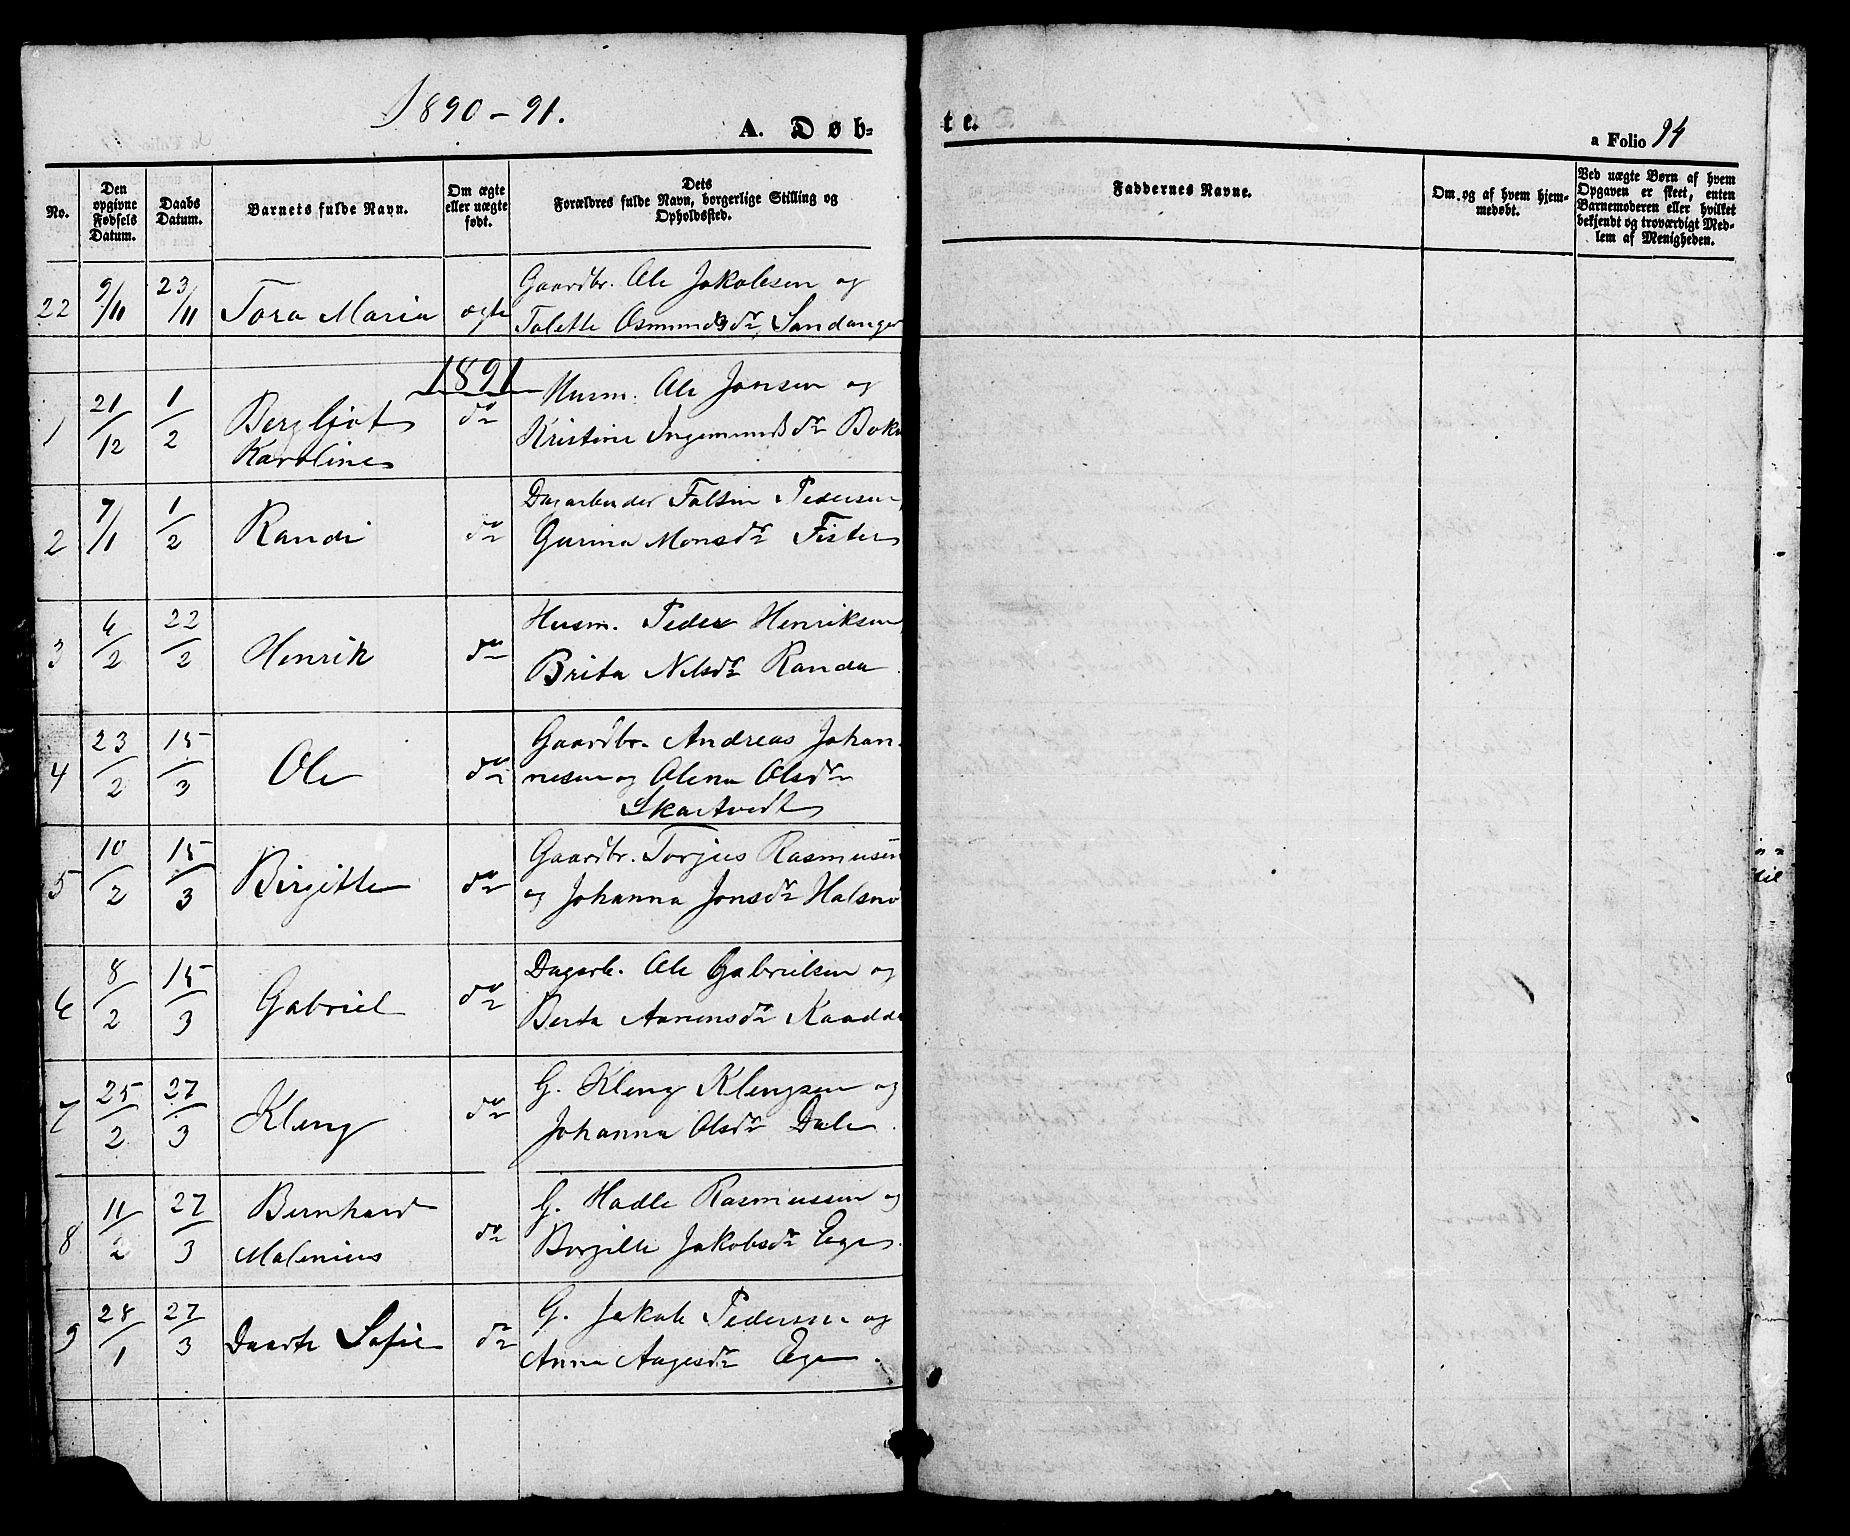 1890-91.
A. Døb-
te.
a Folio 94
No.
Den opgivne Fødsels Datum.
Daabs Datum.
Barnets fulde Navn.
Om ægte eller uægte født.
Dets Forældres fulde Navn, borgerlige Stilling og Opholdssted.
Faddernes Navne.
Om og af hvem hjemmedøbt.
Ved uægte Børn af hvem Opgaven er skeet, enten Barnemoderen eller hvilket bekjendt og troværdigt Medlem af Menigheden.
22 9/11 23/11 Tora Maria ægte Gaardbr. Ole Jakobsen og
Talette Osmundsdr. Sandanger
1891
1 21/12 1/2 Bergljot do Husm. Ole Jonsen og
Karoline Kristine Ingemundsdr Bokn
2 7/1 1/2 Randi do Dagarbeider Falsin Pedersen,
Gurina Monsdr Fister
3 6/2 22/2 Henrik do Husm. Peder Henriksen,
Brita Nilsdr Randa
4 23/2 15/3 Ole do Gaardbr. Andreas Johan-
nesen og Olena Olsdr
Skartvedt
5 10/2 15/3 Birgitte do Gaardbr. Torjus Rasmusen
og Johanna Jonsdr Halsnø
6 8/2 15/3 Gabriel do Dagarb. Ole Gabrielsen og
Berta Aanensdr Kaada
7 25/2 27/3 Kleng do G. Kleng Klengsen og
Johanna Olsdr Dale.
8 11/2 27/3 Bernhard do G. Hadle Rasmussen og
Malenius Borgille Jakobsdr Ege.
9 28/1 27/3 Daarte Sofie do G. Jakob Pedersen og
Anna Aagesdr Ege.
til